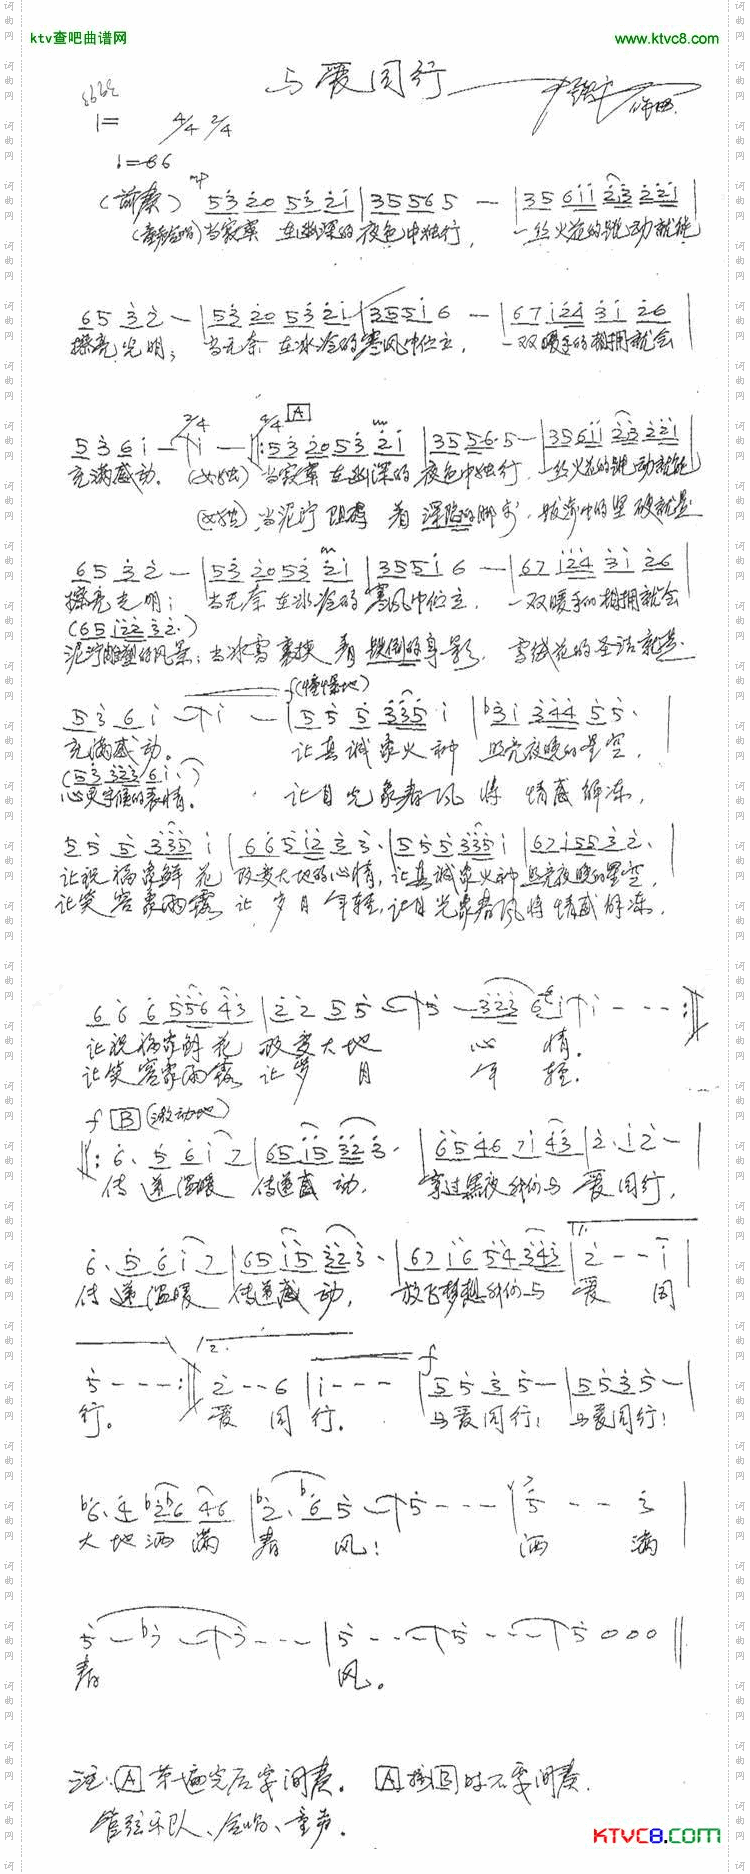 ktv查吧曲谱网 www.ktvc8.com
与爱同行 作曲
1= 4/4 2/4
♩=66
(前奏) mp 53 20 53 21 | 35 56 5 — | 35 611 23 221 |
(童声合唱) 当寂寞 在幽深的 夜色中独行, 一丝火花的跳动就能
65 3 2 — | 53 20 53 21 | 3551 6 — | 67 124 31 26 |
擦亮光明; 当无奈 在冰冷的 寒风中伫立, 一双暖手的相拥就会
2/4 4/4 A
53 6 1 — | 1 — ‖: 53 20 53 21 | 35 56· 5 — | 35 611 23 221 |
充满感动。 (女独) 当寂寞 在幽深的 夜色中独行, 一丝火花的跳动就能
(女独) 当泥泞 阻碍 着 深陷的脚步, 拔涉中的坚硬就是
65 3 2 — | 53 20 53 21 | 3551 6 — | 67 124 31 26
擦亮光明; 当无奈 在冰冷的 寒风中伫立, 一双暖手的相拥就会
(65 122 32·)
泥泞雕塑的风景; 当冰雪 裹挟 着 跌倒的身影, 雪绒花的圣洁就是
f
53 6 1 — | 1 — | 55 5 335· 1 | b31 344 55· |
充满感动。 让真诚象火种 照亮夜晚的星空,
(53 323 61·)
心灵守候的表情。 让目光象春风 将 情感解冻,
55 5 335 1 | 66 512 33· | 555 335 1 | 67 155 32· |
让祝福象鲜花 改变大地的心情, 让真诚象火种 照亮夜晚的星空,
让笑容象雨露 让 岁月年轻, 让目光象春风将情感解冻,
66 6 556 43 | 22 55 — | 5 — 323 61 | 1 — — — :‖
让祝福象鲜花 改变大地 心 情。
让笑容象雨露 让岁月 年 轻。
f B (激动地)
‖: 6· 5 61 7 | 65 15 32 3· | 65 46 71 43 | 2· 12 — |
传递温暖 传递感动, 穿过黑夜我们与 爱同行,
1.
6· 5 61 7 | 65 15 32 3· | 67 16 54 343 | 2 — — 1
传递温暖 传递感动, 放飞梦想我们与 爱 同
2. f
5 — — — :‖ 2 — — 6 | 1 — — — | 55 35 — | 55 35 — |
行。 爱 同 行。 与爱同行! 与爱同行!
b6· 4 b2b6 46 | b2· b6 5 — | 5 — — — | 5 — — 3 |
大地洒满 春 风! 洒 满
5 — b7 — | 7 — — — | 5 — — — | 5 — — — | 5 0 0 0 ‖
春 风。
注: A 第一遍完后穿间奏。 A 接 B 时不要间奏.
管弦乐队、合唱、童声。
KTVC8.COM
词曲网